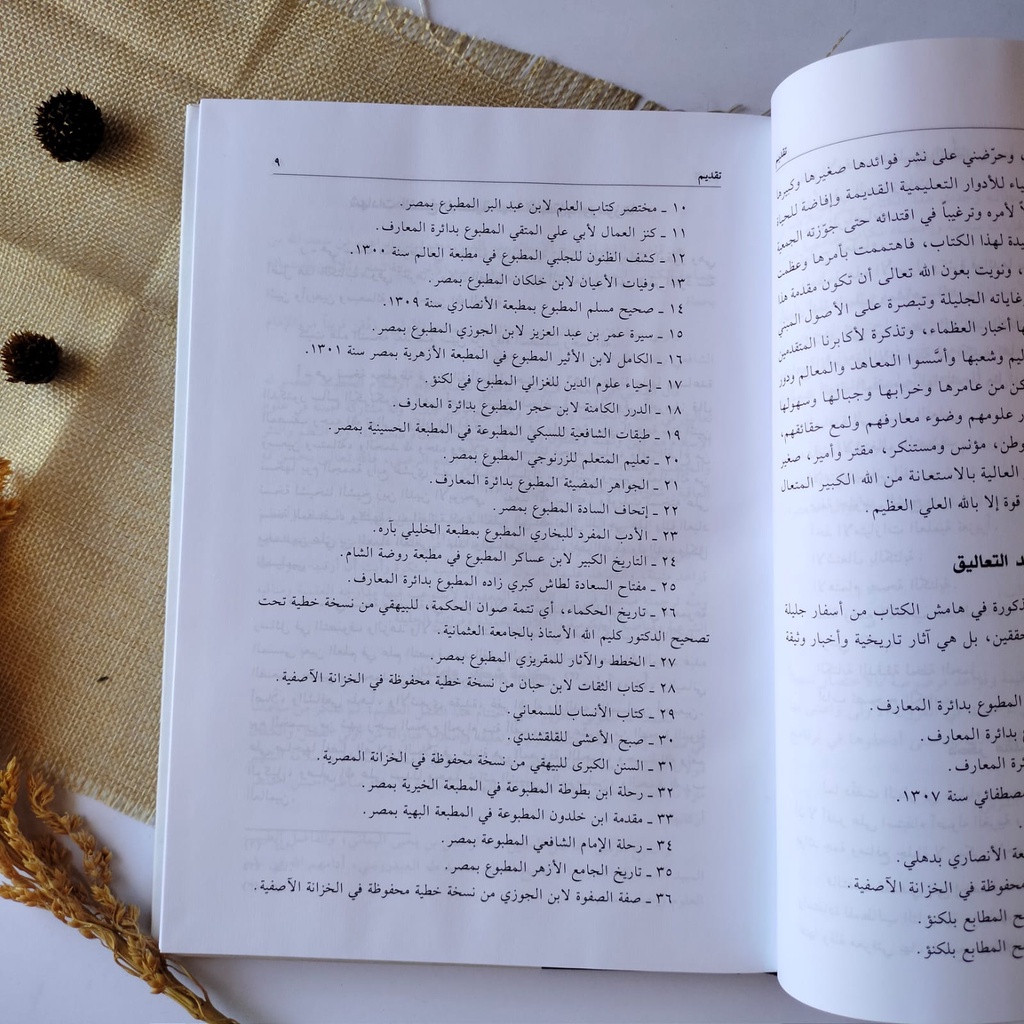 تقديم
، وحرّضني على نشر فوائدها صغيرها وكبيرها
ياء للأدوار التعليمية القديمة وإفاضة للحياة
ة لأمره وترغيباً في اقتدائه حتى جوّزته الجمعية
يدة لهذا الكتاب، فاهتممت بأمرها وعظمت
، ونويت بعون الله تعالى أن تكون مقدمة هذا
غاياته الجليلة وتبصرة على الأصول المبني
ها أخبار العظماء، وتذكرة لأكابرنا المتقدمين
ليم وشعبها وأسَّسوا المعاهد والمعالم ودور
كن من عامرها وخرابها وجبالها وسهولها
ر علومهم وضوء معارفهم ولمع حقائقهم،
وطن، مؤنس ومستنكر، مقتر وأمير، صغير
العالية بالاستعانة من الله الكبير المتعال
قوة إلا بالله العلي العظيم.
د التعاليق
ذكورة في هامش الكتاب من أسفار جليلة
حققين، بل هي آثار تاريخية وأخبار وثيقة
المطبوع بدائرة المعارف.
ع بدائرة المعارف.
ئرة المعارف.
صطفائي سنة ١٣٠٧.
عة الأنصاري بدهلي.
محفوظة في الخزانة الآصفية.
ح المطابع بلكنؤ.
ح المطابع بلكنؤ.
تقديم ٩
١٠ ـ مختصر كتاب العلم لابن عبد البر المطبوع بمصر.
١١ ـ كنز العمال لأبي علي المتقي المطبوع بدائرة المعارف.
١٢ ـ كشف الظنون للجلبي المطبوع في مطبعة العالم سنة ١٣٠٠.
١٣ ـ وفيات الأعيان لابن خلكان المطبوع بمصر.
١٤ ـ صحيح مسلم المطبوع بمطبعة الأنصاري سنة ١٣٠٩.
١٥ ـ سيرة عمر بن عبد العزيز لابن الجوزي المطبوع بمصر.
١٦ ـ الكامل لابن الأثير المطبوع في المطبعة الأزهرية بمصر سنة ١٣٠١.
١٧ ـ إحياء علوم الدين للغزالي المطبوع في لكنؤ.
١٨ ـ الدرر الكامنة لابن حجر المطبوع بدائرة المعارف.
١٩ ـ طبقات الشافعية للسبكي المطبوعة في المطبعة الحسينية بمصر.
٢٠ ـ تعليم المتعلم للزرنوجي المطبوع بمصر.
٢١ ـ الجواهر المضيئة المطبوع بدائرة المعارف.
٢٢ ـ إتحاف السادة المطبوع بمصر.
٢٣ ـ الأدب المفرد للبخاري المطبوع بمطبعة الخليلي بآره.
٢٤ ـ التاريخ الكبير لابن عساكر المطبوع في مطبعة روضة الشام.
٢٥ ـ مفتاح السعادة لطاش كبري زاده المطبوع بدائرة المعارف.
٢٦ ـ تاريخ الحكماء، أي تتمة صوان الحكمة، للبيهقي من نسخة خطية تحت
تصحيح الدكتور كليم الله الأستاذ بالجامعة العثمانية.
٢٧ ـ الخطط والآثار للمقريزي المطبوع بمصر.
٢٨ ـ كتاب الثقات لابن حبان من نسخة خطية محفوظة في الخزانة الآصفية.
٢٩ ـ كتاب الأنساب للسمعاني.
٣٠ ـ صبح الأعشى للقلقشندي.
٣١ ـ السنن الكبرى للبيهقي من نسخة محفوظة في الخزانة المصرية.
٣٢ ـ رحلة ابن بطوطة المطبوعة في المطبعة الخيرية بمصر.
٣٣ ـ مقدمة ابن خلدون المطبوعة في المطبعة البهية بمصر.
٣٤ ـ رحلة الإمام الشافعي المطبوعة بمصر.
٣٥ ـ تاريخ الجامع الأزهر المطبوع بمصر.
٣٦ ـ صفة الصفوة لابن الجوزي من نسخة خطية محفوظة في الخزانة الآصفية.